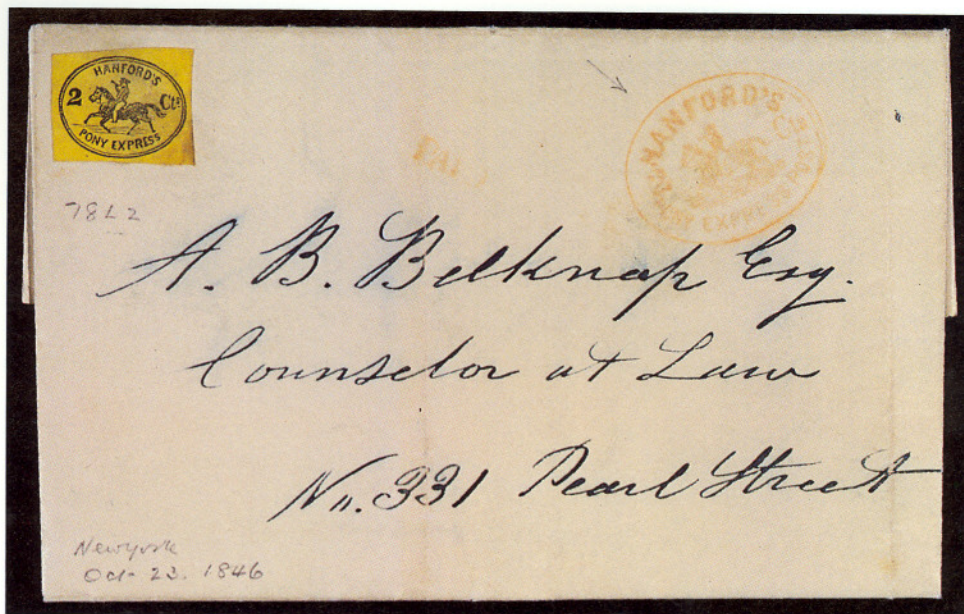 HANFORD'S
2 Cts
PONY EXPRESS
PAID
HANFORD'S
PONY EXPRESS POST
78L2
A. B. Belknap Esq.
Counselor at Law
No. 331 Pearl Street
Newyork
Oct- 23. 1846